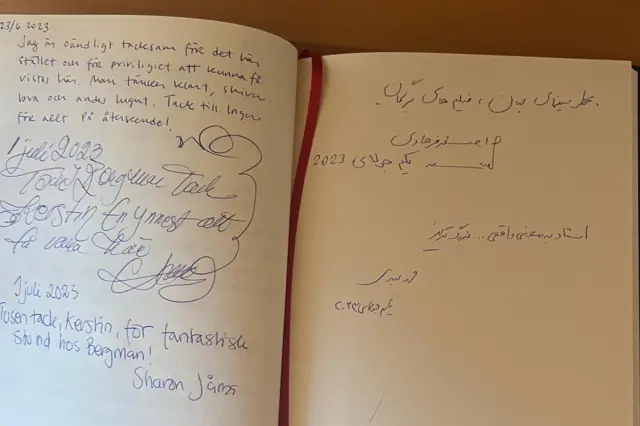 23/6 2023
Jag är oändligt tacksam för det här
stället och för priviligiet att kunna få
vistas här. Man tänker klart, skriver
bra och andas lugnt. Tack till Ingmar
för allt. På återseende!
1 juli 2023
Tack Tack
Kerstin
få vara här
1 juli 2023
Tusen tack, Kerstin, för fantastisk
stund hos Bergman!
Sharon Jåma
عطر سینمای ، فیلم‌های برگمان.
اصغر فرهادی
یکم جولای 2023
استاد به معنی واقعی... بزرگ
یکم جولای ۲۰۲۳